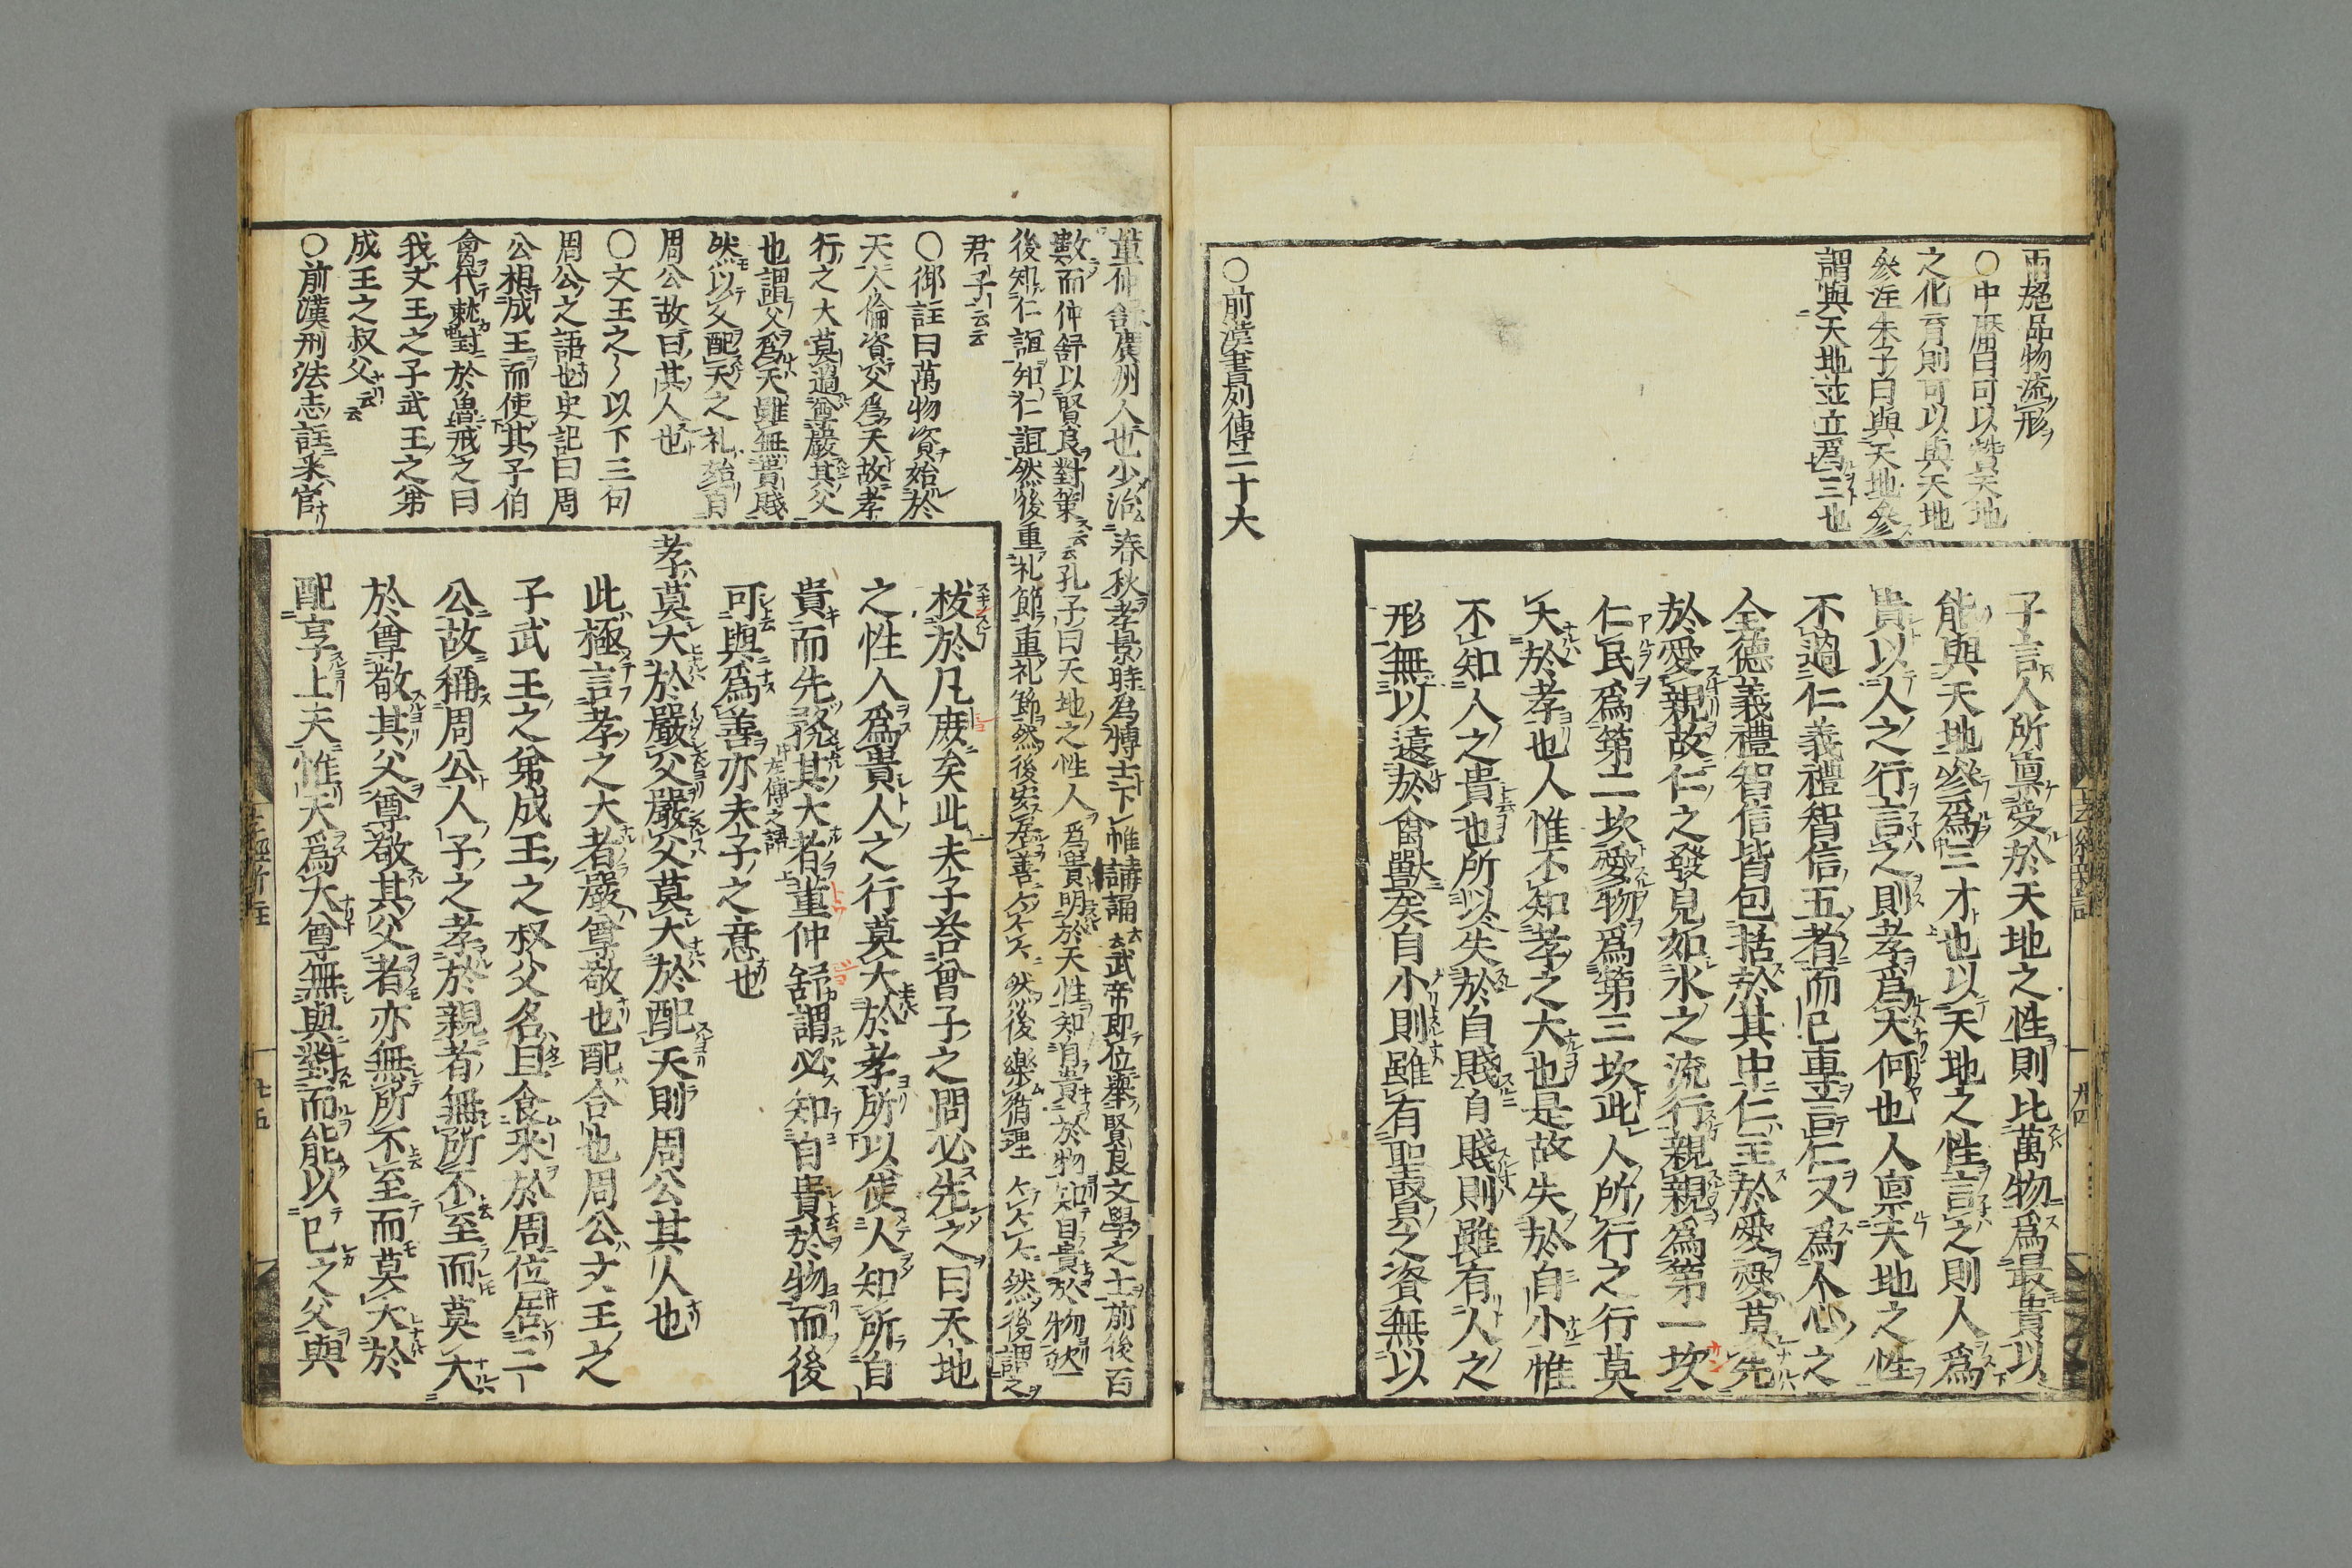 雨施品物流形
○中庸曰可以贊天地
之化育則可以與天地
參註朱子曰與天地參
謂與天地並立爲三也
子言人所稟受於天地之性則比萬物爲最貴以
能與天地參爲三才也以天地之性言之則人爲
貴以人之行言之則孝爲大何也人稟天地之性
不過仁義禮智信五者而已專言仁又爲人心之
全德義禮智信皆包括於其中仁主於愛愛莫先
於愛親故仁之發見如水之流行親親爲第一坎
仁民爲第二坎愛物爲第三坎此人所行之行莫
大於孝也人惟不知孝之大也是故失於自小惟
不知人之貴也所以失於自賤自賤則雖有人之
形無以遠於禽獸矣自小則雖有聖賢之資無以
○前漢書列傳二十六
董仲舒廣川人也少治春秋孝景時爲博士下帷講誦云云武帝即位舉賢良文學之士前後百
數而仲舒以賢良對策云云孔子曰天地之性人爲貴明於天性知自貴於物知自貴於物然
後知仁誼知仁誼然後重礼節重礼節然後安處善〻〻〻然後樂循理〻〻〻然後謂之
君子云云
○御註曰萬物資始於
天人倫資父爲天故孝
行之大莫過尊嚴其父
也謂父爲天雖無貴賤
然以父配天之礼始自
周公故曰其人也
○文王之〻以下三句
周公之語也史記曰周
公相成王而使其子伯
禽代就封於魯戒之曰
我文王之子武王之弟
成王之叔父云云
○前漢刑法志註釆官
拔於凡庶矣此夫子答曾子之問必先之曰天地
之性人爲貴人之行莫大於孝所以使人知所自
貴而先務其大者董仲舒謂必知自貴於物而後
可與爲善亦夫子之意也
左傳之語
孝莫大於嚴父嚴父莫大於配天則周公其人也
此極言孝之大者嚴尊敬也配合也周公文王之
子武王之弟成王之叔父名旦食釆於周位居三
公故稱周公人子之孝於親者無所不至而莫大
於尊敬其父尊敬其父者亦無所不至而莫大於
配享上天惟天爲大尊無與對而能以已之父與